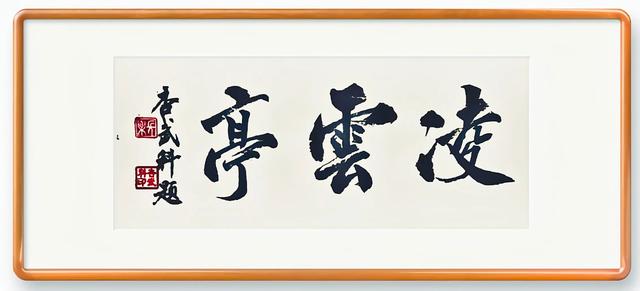 凌雲亭
武科題